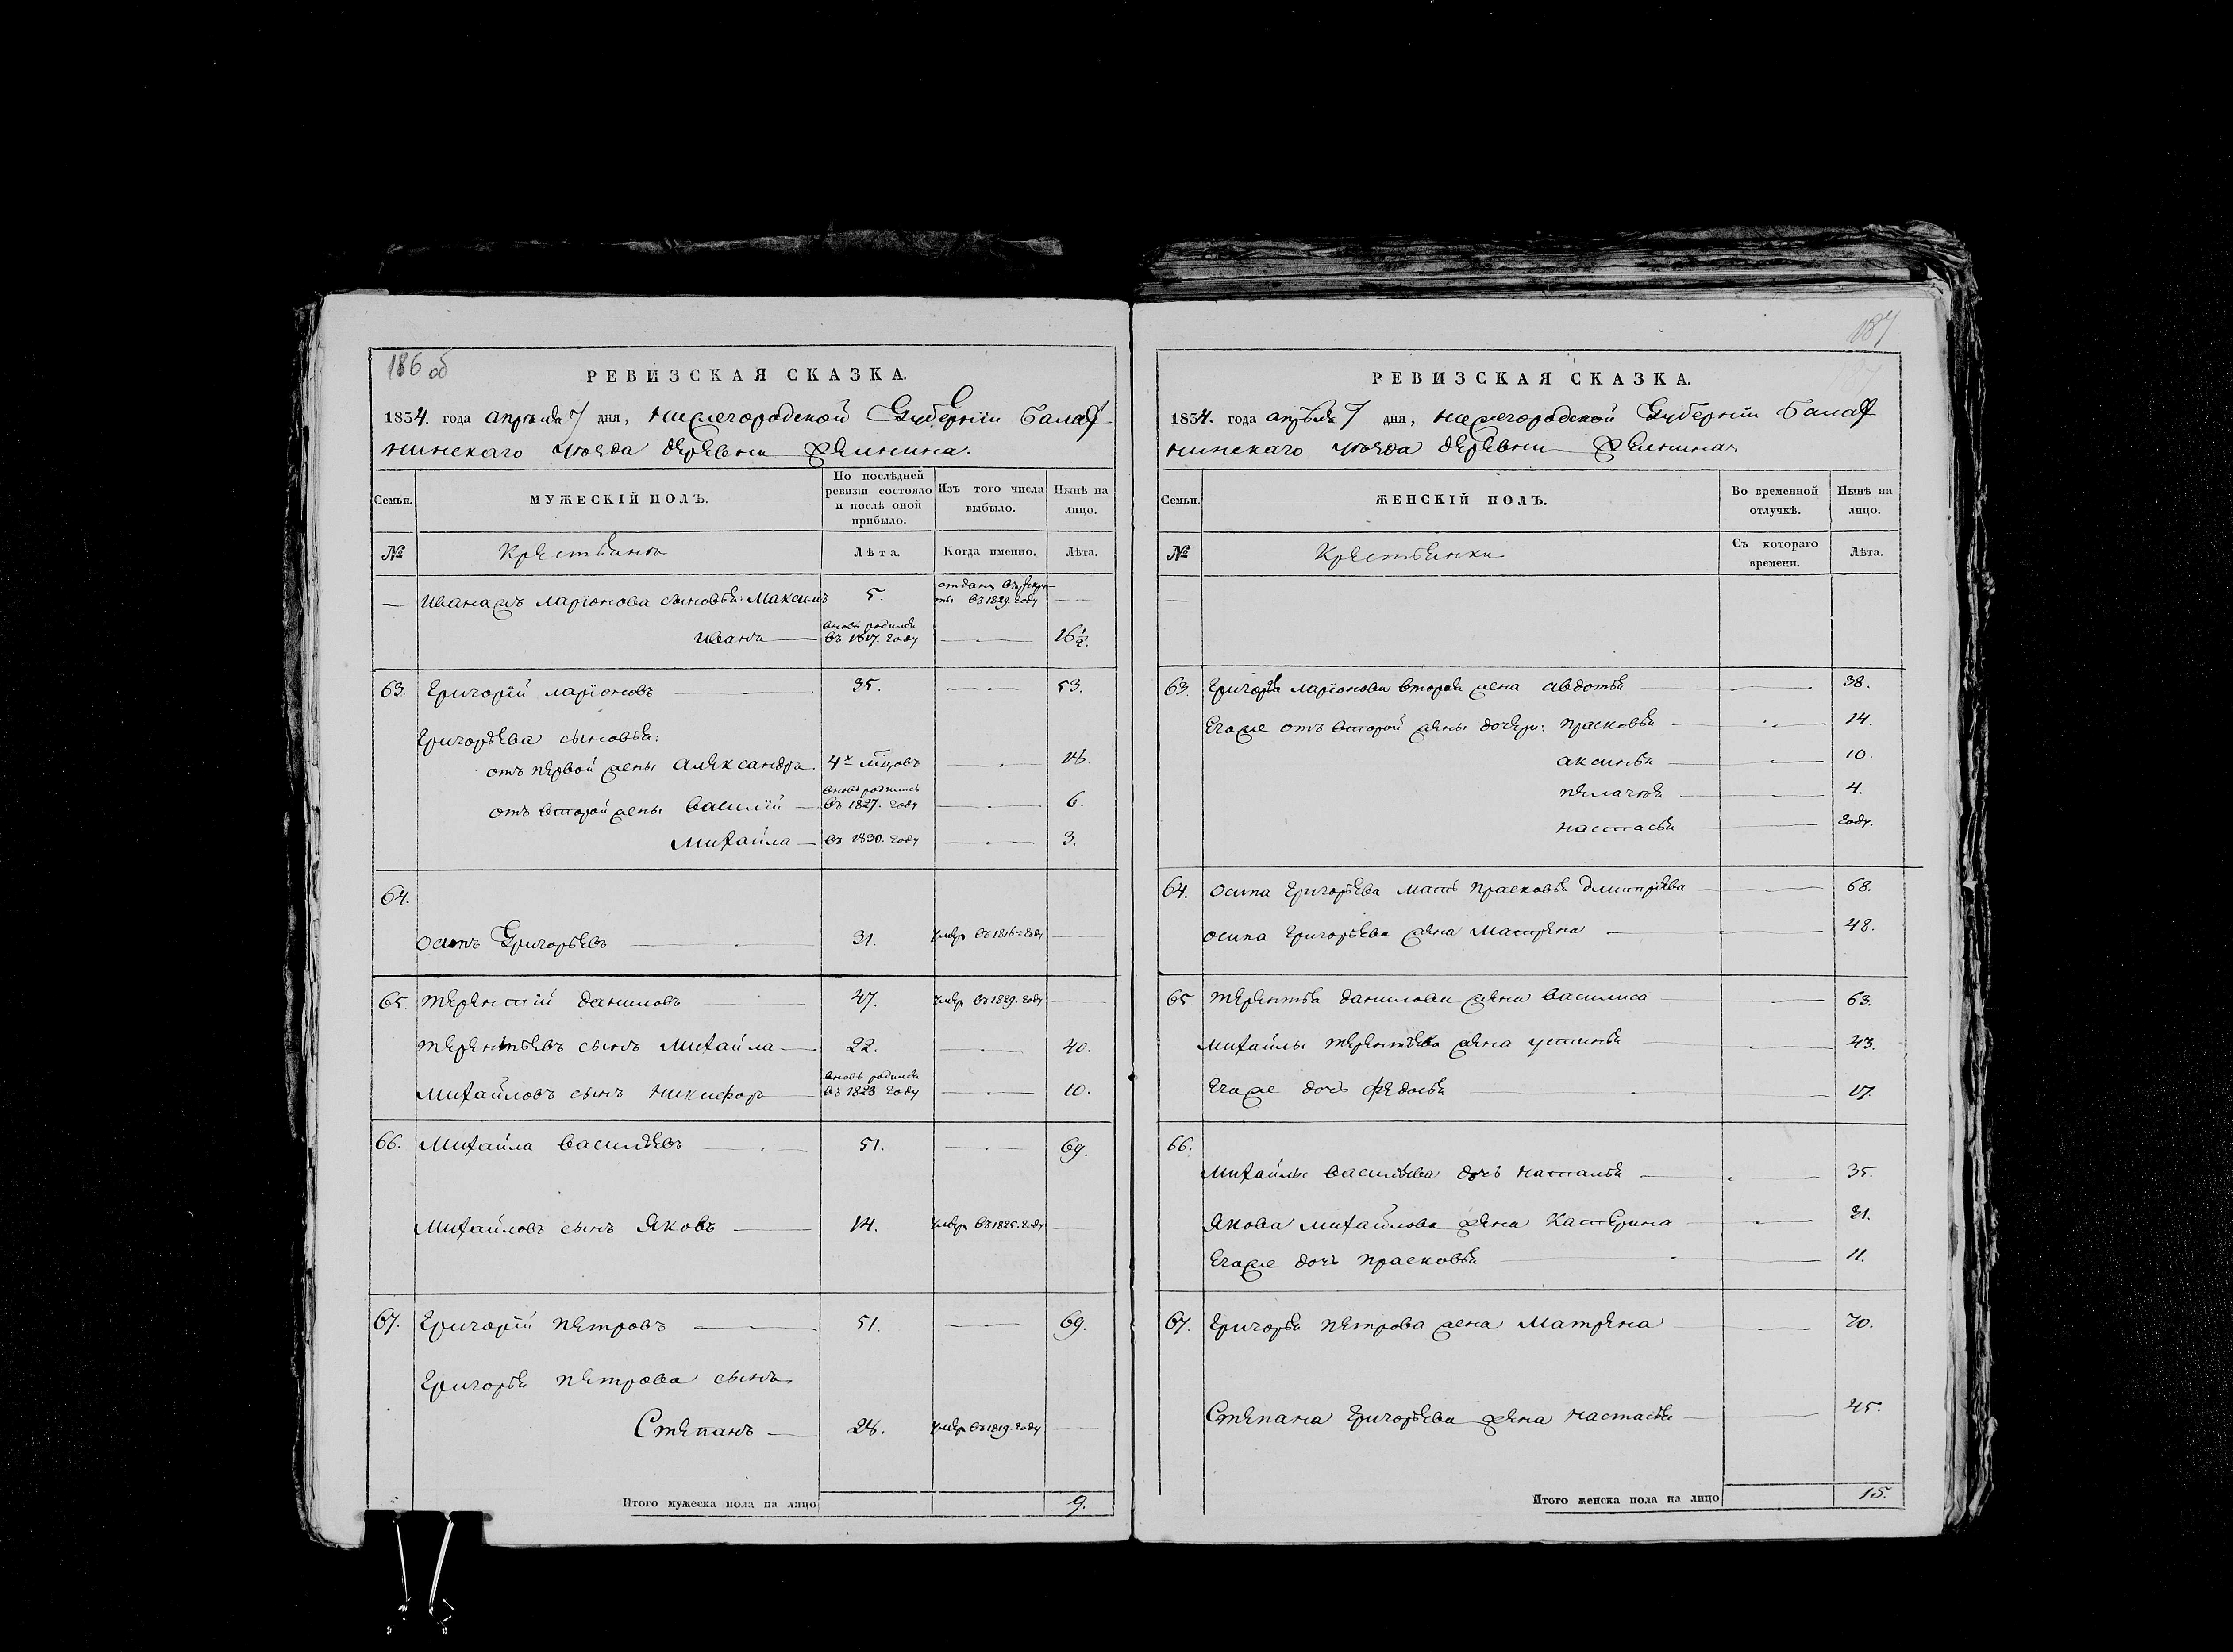 186 об
РЕВИЗСКАЯ СКАЗКА.
1834. года апрѣля 7 дня, нижегородской Губерніи Балах
нинскаго уѣзда деревни
Семьи.
МУЖЕСКІЙ ПОЛЪ.
По послѣдней ревизіи состояло и послѣ оной прибыло.
Изъ того числа выбыло.
Нынѣ на лицо.
№
Крестьяне
Лѣта.
Когда именно.
Лѣта.
— Ивана ларіонова сыновья: Максимъ 5. отданъ въ рекру-
ты въ 1829. году
вновь родился
иванъ въ 1817. году 16 1/2.
63. григорій ларіоновъ 35. 53.
григорьева сыновья:
отъ первой жены александръ 4х мцовъ 18.
вновь родились
отъ второй жены василій въ 1827. году 6.
михайла въ 1830. году 3.
64.
осипъ Григорьевъ 31. умеръ въ 1816 = году
65. терентий даниловъ 47. умеръ въ 1829. году
терентьевъ сынъ михайла 22. 40.
вновь родился
михайловъ сынъ никифоръ въ 1823 году 10.
66. Михайла васильевъ 51. 69.
михайловъ сынъ яковъ 14. умеръ въ 1825. году
67. григорій петровъ 51. 69.
григорья петрова сынъ
Степанъ 28. умеръ въ 1819. году
Итого мужеска пола на лицо 9.
187
РЕВИЗСКАЯ СКАЗКА.
1834. года апрѣля 7 дня, нижегородской Губерніи Балах
нинскаго уѣзда деревни
Семьи.
ЖЕНСКІЙ ПОЛЪ.
Во временной отлучкѣ.
Нынѣ на лицо.
№
Крестьянки
Съ котораго времени.
Лѣта.
—
63. григорья ларіонова вторая жена авдотья 38.
Егоже отъ второй жены дочери: прасковья 14.
аксинья 10.
пелагея 4.
настасья году.
64. осипа григорьева мать прасковья дмитріева 68.
осипа григорьева жена матрена 48.
65 терентья данилова жена василиса 63.
михайлы терентьева жена устинья 43.
Егоже дочь федосья 17.
66.
михайлы васильева дочь наталья 35.
якова михайлова жена катерина 31.
Егоже дочь прасковья 11.
67. григорья петрова жена матрена 70.
Степана григорьева жена настасья 45.
Итого женска пола на лицо 15.